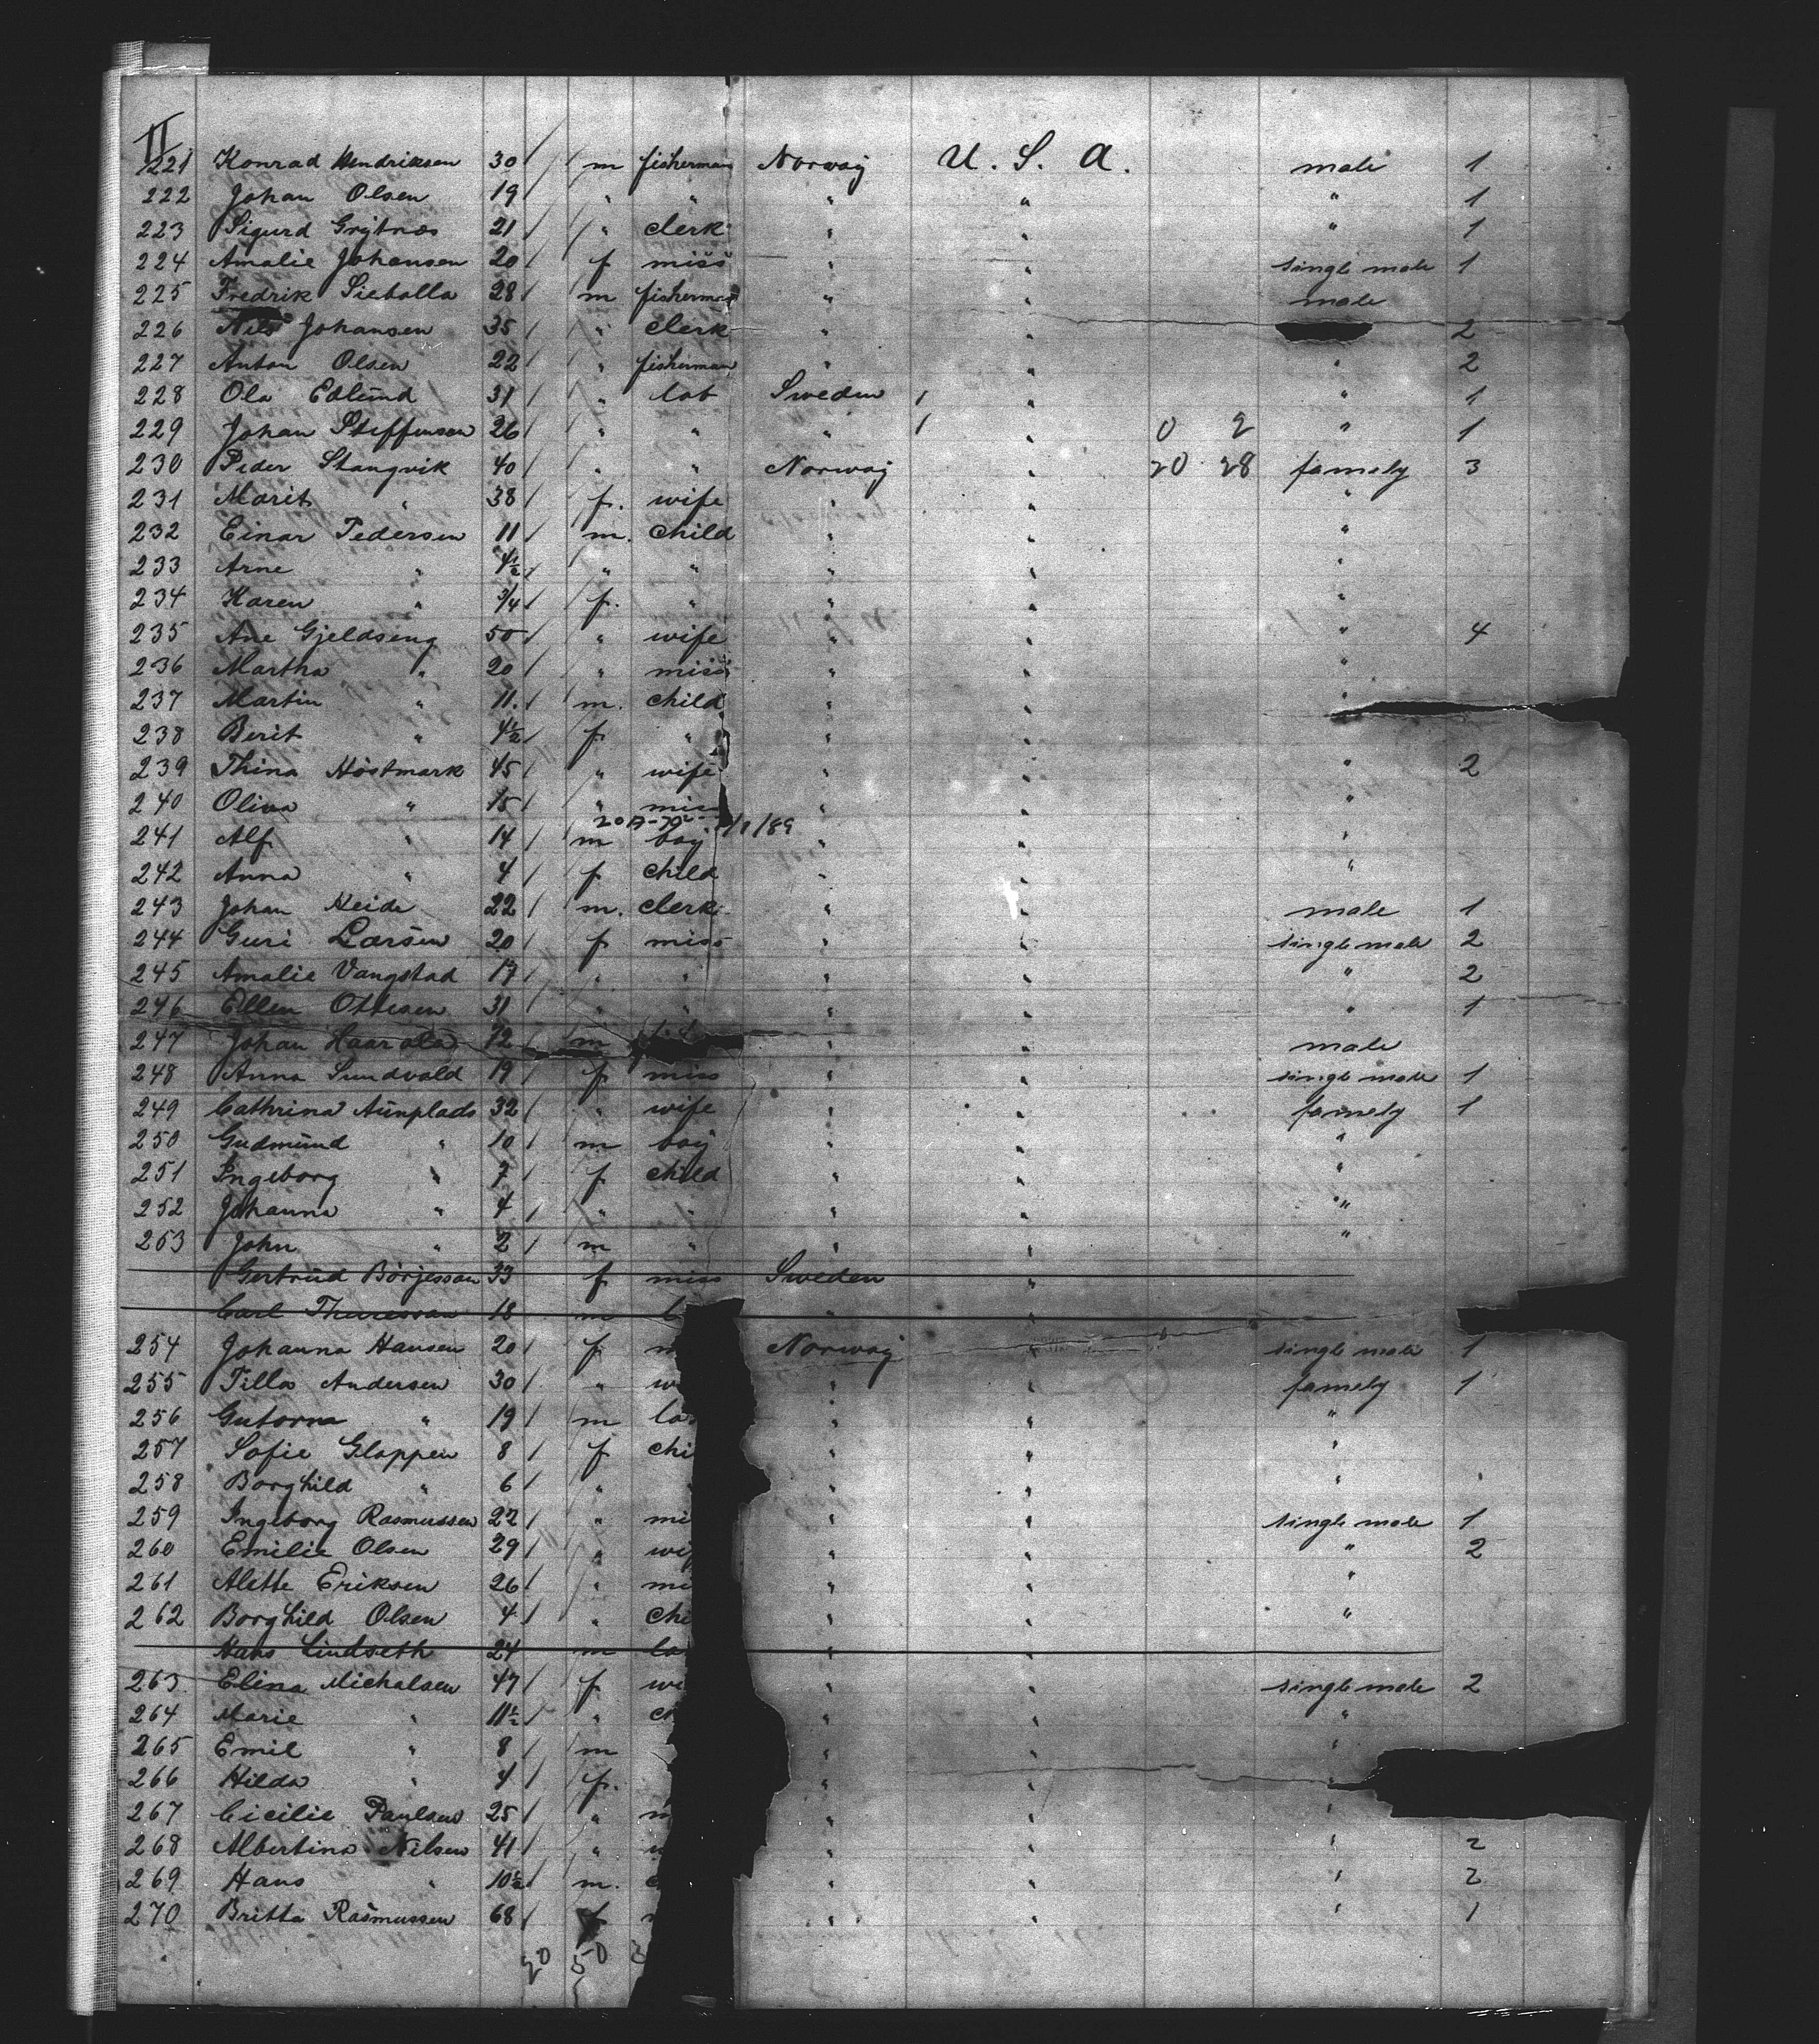 II
221 Konrad Hendriksen 30 / / m fisherman Norway U. S. A. male 1
222 Johan Olsen 19 / / " " " " " 1
223 Sigurd Grÿtnæs 21 / / " clerk " " " 1
224 Amalie Johansen 20 / f miss " " single male 1
225 Fredrik Sieballa 28 / m fisherman " " male
226 Nils Johansen 35 / / " clerk " " 2
227 Anton Olsen 22 / / " fisherman " " " 2
228 Ola Edlund 31 / / " lab Sweden / " " 1
229 Johan Steffensen 26 / / " " " / " 0 2 " 1
230 Peder Stangvik 40 / / " " Norway " 20 28 famely 3
231 Marit " 38 / / f. wife " " "
232 Einar Pedersen 11 / / m. child " " "
233 Arne " 4½ / / " " " " "
234 Karen " 3/4 / / f. " " " "
235 Ane Gjeldseng 50 / / " wife " " " 4
236 Martha " 20 / / " miss " " "
237 Martin " 11. / / m. child " " "
238 Berit " 4½ / / f " " "
239 Thina Höstmark 45 / / " wife " " " 2
240 Oliva " 15 / / " miss " " "
241 Alf " 14 / / m boy " " "
242 Anna " 4 / / f child " " "
243 Johan Heide 22 / / m. clerk " " male 1
244 Guri Larsen 20 / / f miss " " single male 2
245 Amalie Vangstad 17 / / " " " " " 2
246 Ellen Ottesen 31 / / " " " " " 1
247 Johan Haarala 72 m " " male
248 Anna Sundvald 19 / / f miss " " single male 1
249 Cathrina Aunplads 32 / / " wife " " famely 1
250 Gudmund " 10 / / m boy " " "
251 Ingeborg " 7 / / f child " " "
252 Johanna " 4 / / " " " " "
253 John " 2 / / m " " " "
Gertrud Börjesson 33 f miss Sweden "
Carl Thuresson 18 m l " "
254 Johanna Hansen 20 / / f m Norway " single male 1
255 Tilla Andersen 30 / " w " " famely 1
256 Gutorm " 19 / / m la " " "
257 Sofie Glappen 8 / / f chi " " "
258 Borghild " 6 / / " " " "
259 Ingeborg Rasmussen 22 / / " mi " " single male 1
260 Emilie Olsen 29 / / " wif " " " 2
261 Alette Eriksen 26 / / " mi " " "
262 Borghild Olsen 4 / / " chi " " "
Hans Lindseth 24 m la " "
263 Elina Michalsen 47 / / f wi " " single male 2
264 Marie " 11½ / / " ch " " "
265 Emil " 8 / / m " " "
266 Hilda " 4 / / f. " " "
267 Cicilie Paulsen 25 / / " m " " "
268 Albertina Nilsen 41 / / " w " " " 2
269 Hans " 10½ / / m. c " " " 2
270 Britta Rasmussen 68 / / f m " " " 1
20 50